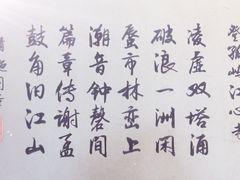 登孤屿江心寺
凌虚双塔涌
破浪一洲闲
蜃市林峦上
潮音钟磬间
篇章传谢孟
鼓角旧江山